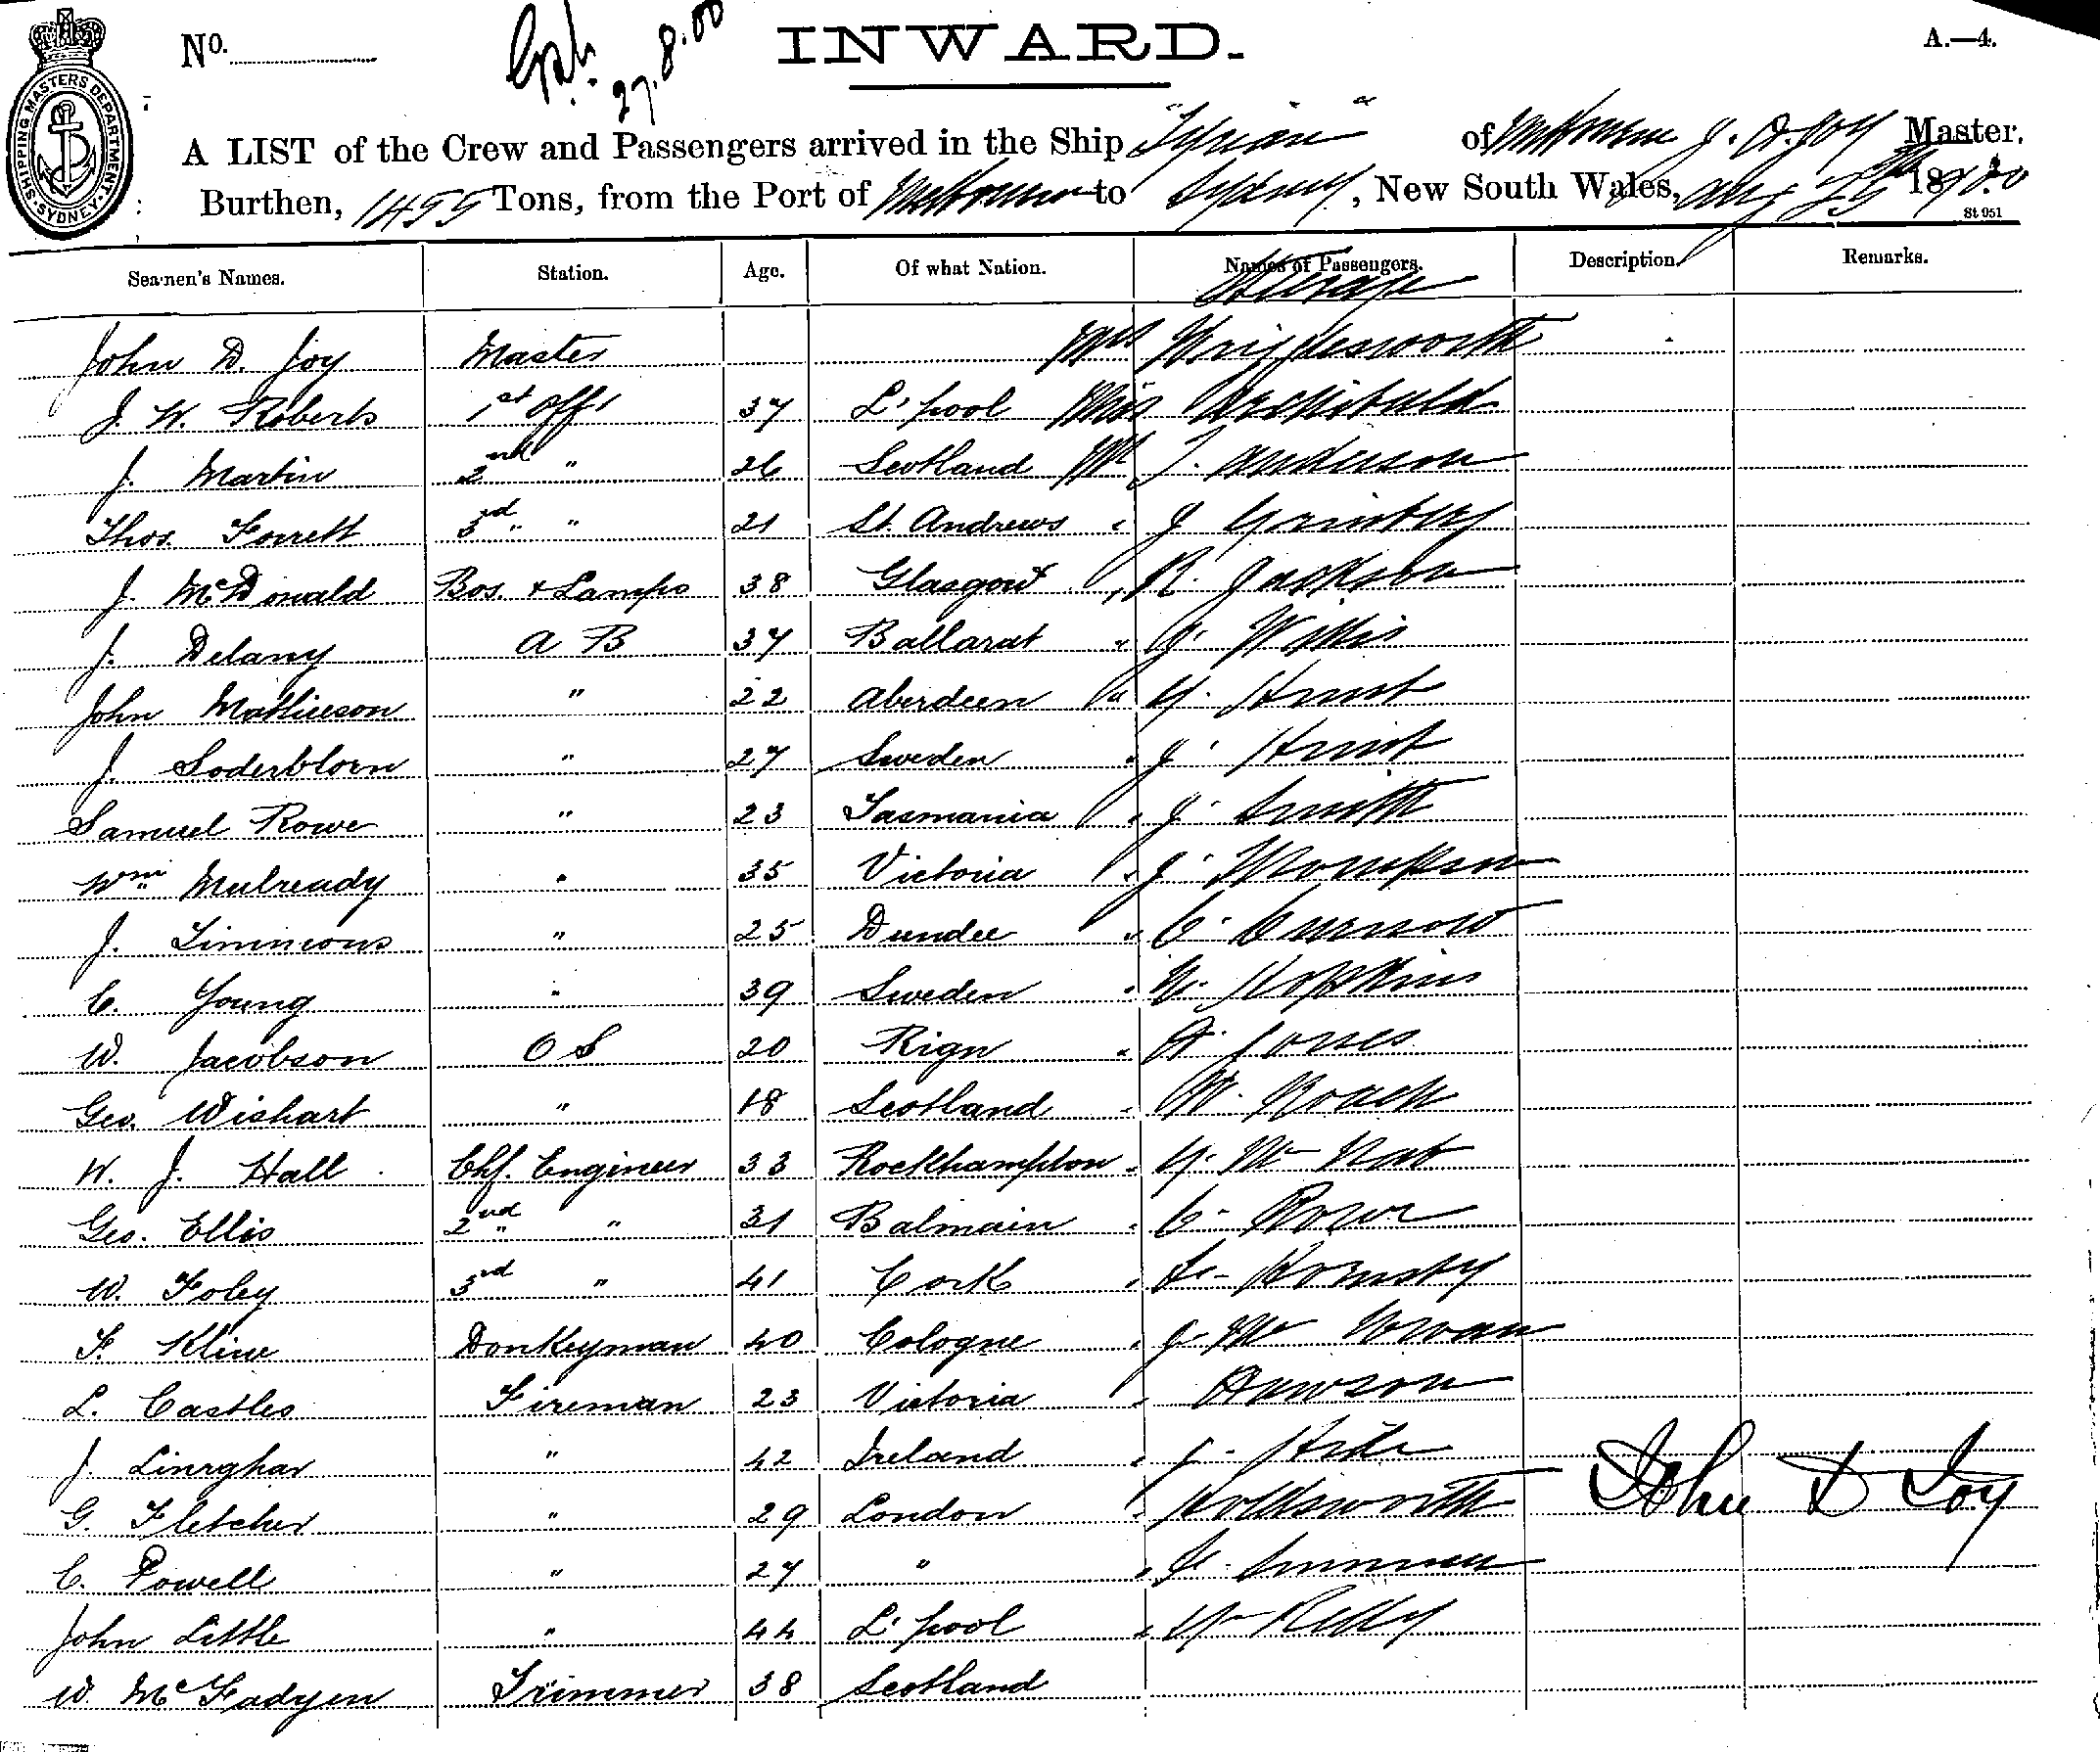 No.
27.8.00
INWARD.
A.—4.
SHIPPING MASTERS DEPARTMENT SYDNEY
A LIST of the Crew and Passengers arrived in the Ship "Tyrian" of Melbourne J. D. Joy Master,
Burthen, 1455 Tons, from the Port of Melbourne to Sydney, New South Wales, Aug 25th 1900
St 951
Seamen's Names. Station. Age. Of what Nation. Names of Passengers. Description. Remarks.
Steerage
John D. Joy Master Mrs
J. W. Roberts 1st Offr 37 L'pool Miss Archibald
J. Martin 2nd " 26 Scotland Mr J. Anderson
Thos. Forrett 3rd " " 21 St. Andrews " J Grimsby
J. McDonald Bos. & Lamps 38 Glasgow " R. Jackson
J. Delany A B 37 Ballarat " J. Willis
John Mathieson " 22 Aberdeen " Hunt
J. Soderblom " 27 Sweden " J. Hunt
Samuel Rowe " 23 Tasmania " J. Smith
Wm Mulready " 35 Victoria " J. Thompson
J. Timmons " 25 Dundee " C. Curnow
C. Young " 39 Sweden " W. Hopkins
W. Jacobson O S 20 " A. Jones
Geo. Wishart " 18 Scotland " W. Roach
W. J. Hall Chf. Engineer 33 Rockhampton "
Geo. Ellis 2nd " " 31 Balmain " C. Rowe
W. Foley 3rd " 41 Cork " Hornsby
F. Kline Donkeyman 40 Cologne " J. Mc
L. Castles Fireman 23 Victoria " Dawson
J. " 42 Ireland "
G. Fletcher " 29 London " Holdsworth
John D Joy
C. Powell " 27 " "
John Little " 44 L'pool " Kelly
W. McFadyen Trimmer 38 Scotland